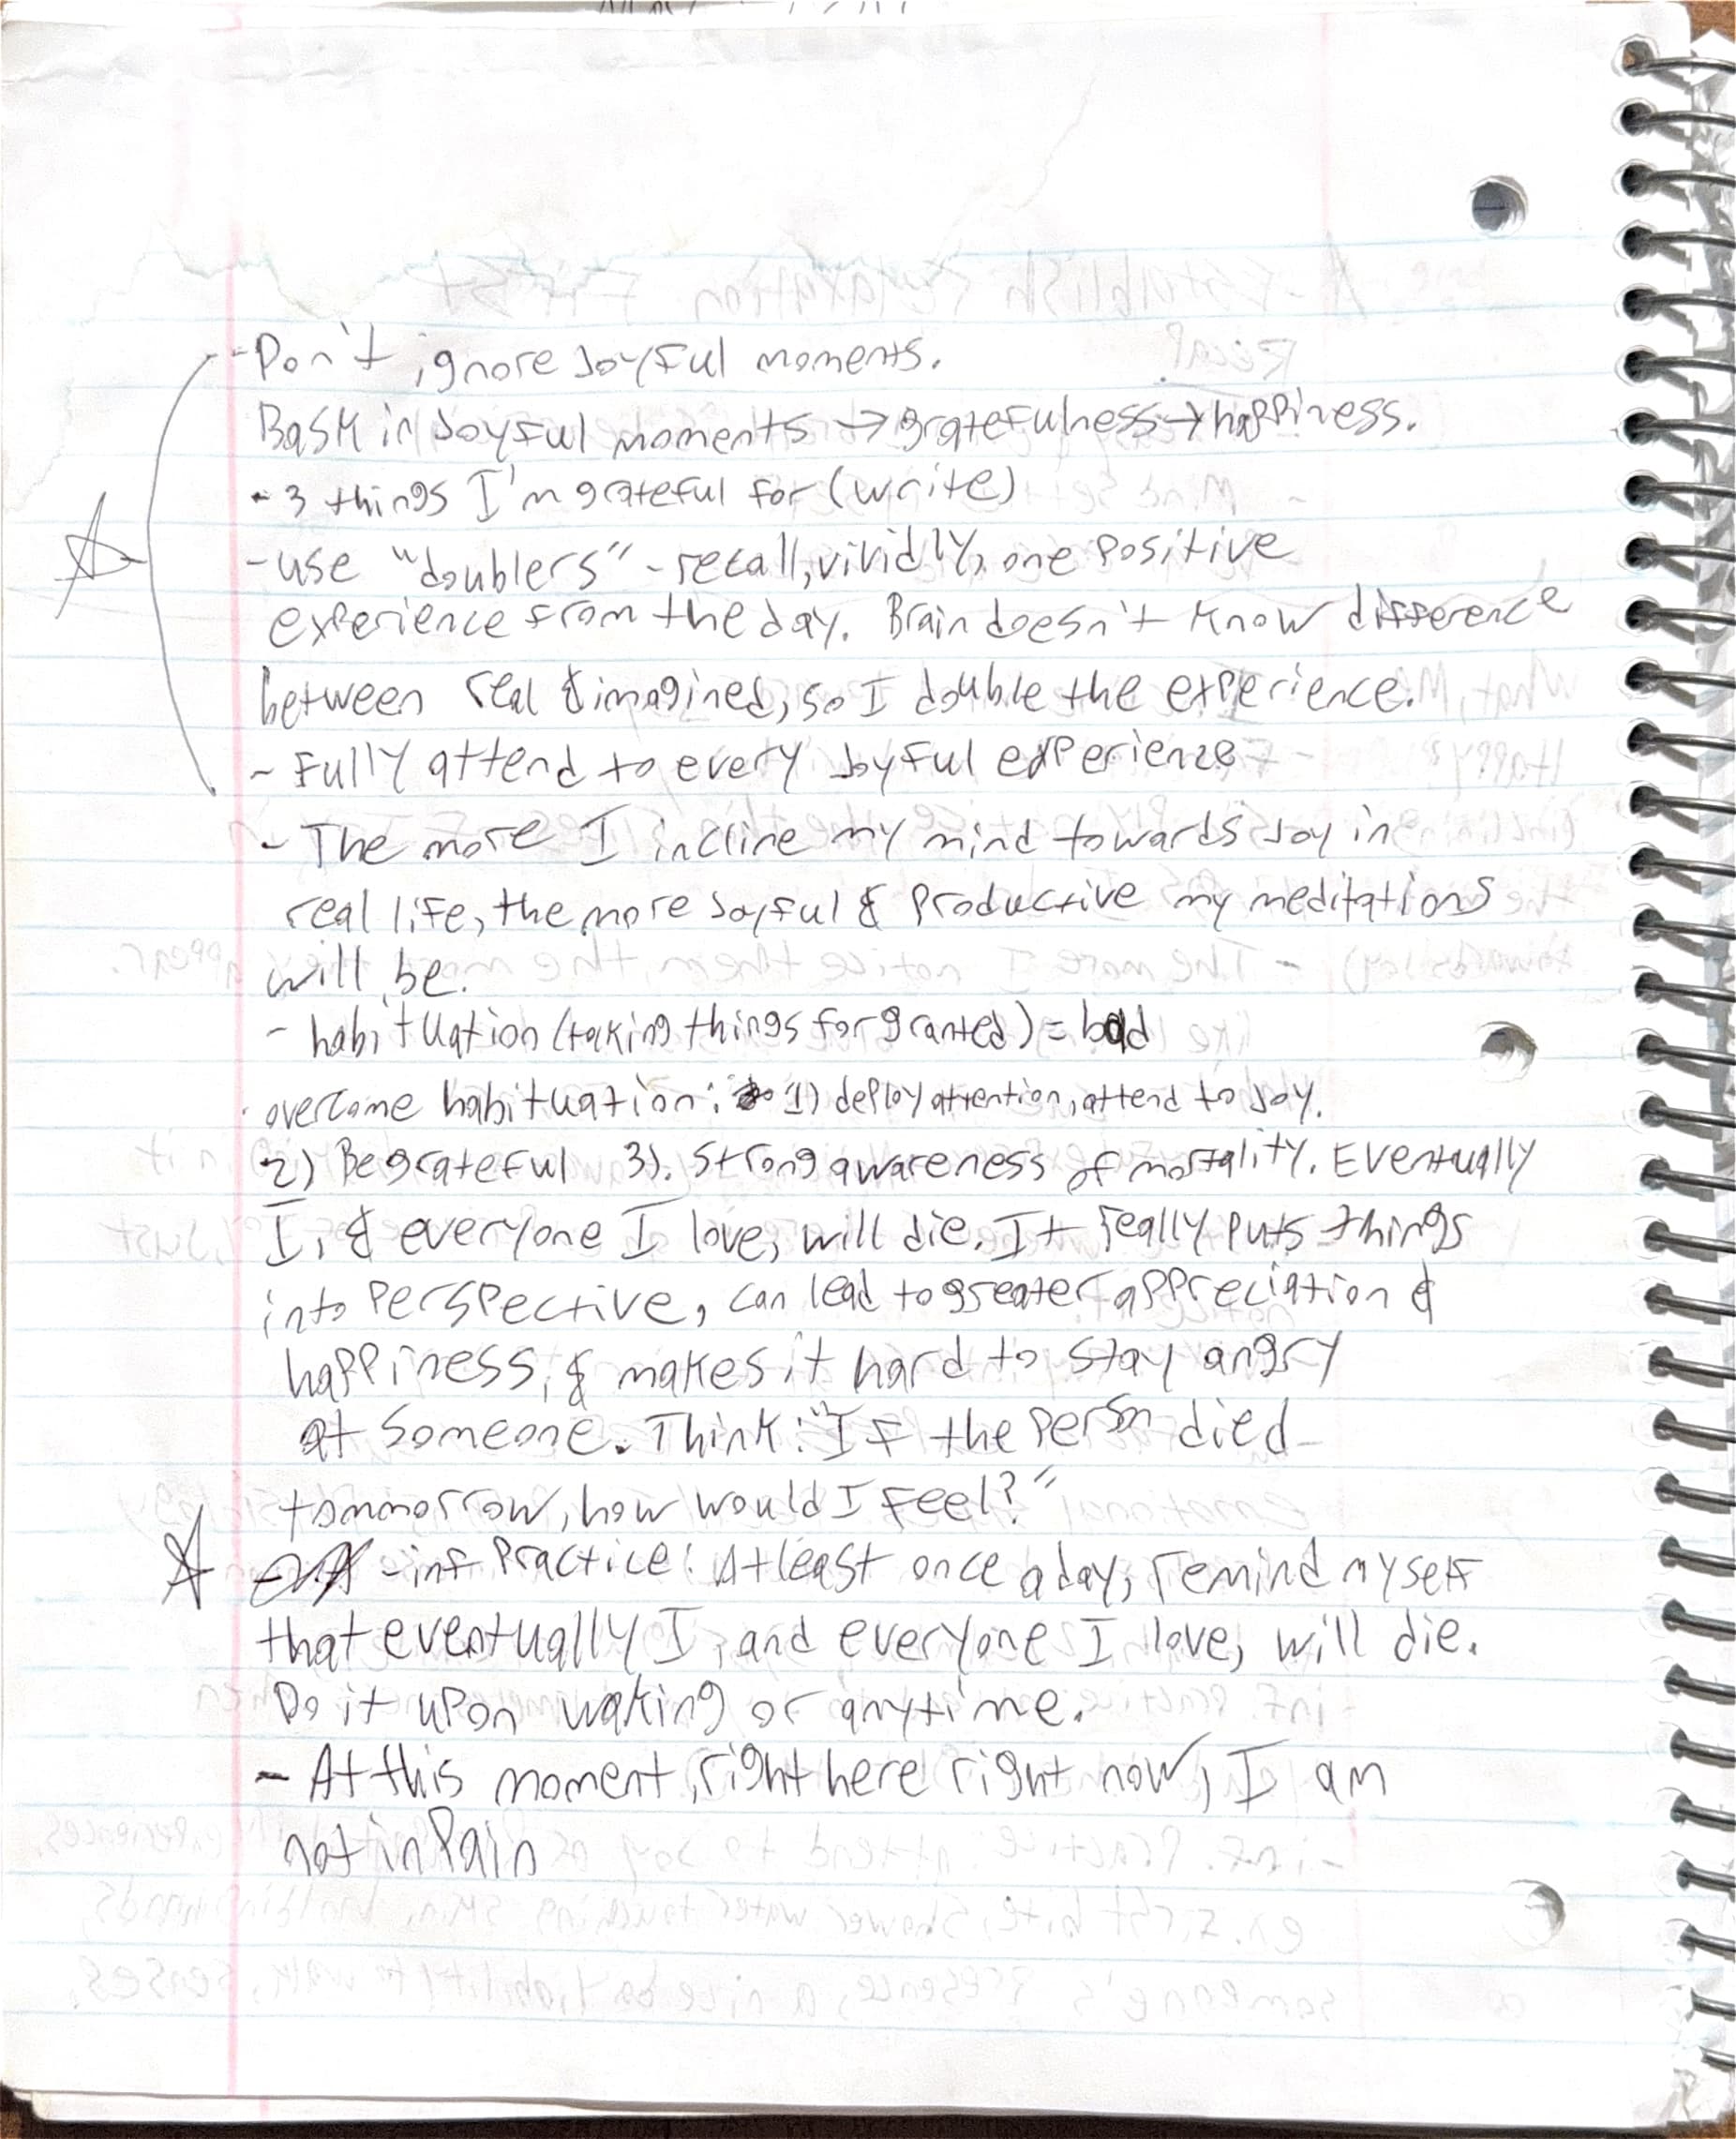 - Don't ignore joyful moments.
Bask in joyful moments → gratefulness → happiness.
- 3 things I'm grateful for (write)
- use "doublers" - recall, vividly, one positive
experience from the day. Brain doesn't know difference
between real & imagined, so I double the experience.
- Fully attend to every joyful experience
- The more I incline my mind towards joy in
real life, the more joyful & productive my meditations
will be.
- habituation (taking things for granted) = bad
overcome habituation: 1) deploy attention, attend to joy.
2) Be grateful 3). Strong awareness of mortality. Eventually
I, & everyone I love, will die. It really puts things
into perspective, can lead to greater appreciation &
happiness, & makes it hard to stay angry
at someone. Think: "If the person died
tommorrow, how would I feel?"
- inf practice: At least once a day, remind myself
that eventually I, and everyone I love, will die.
Do it upon waking or anytime.
- At this moment, right here right now, I am
not in pain